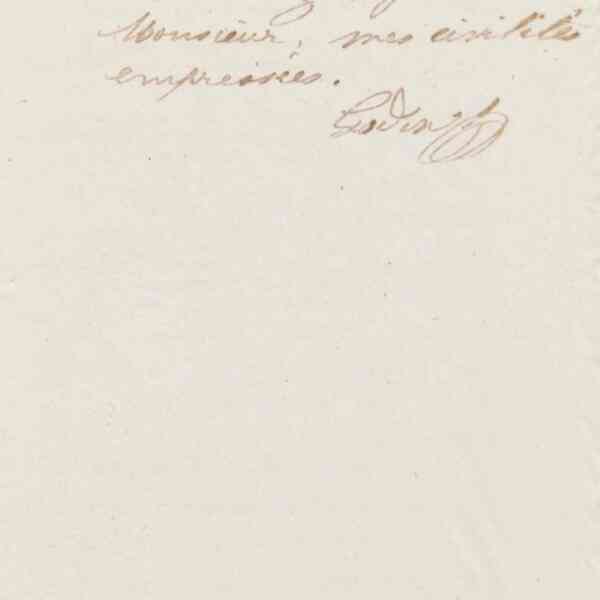 Monsieur, mes civilités
empressées.
Godin